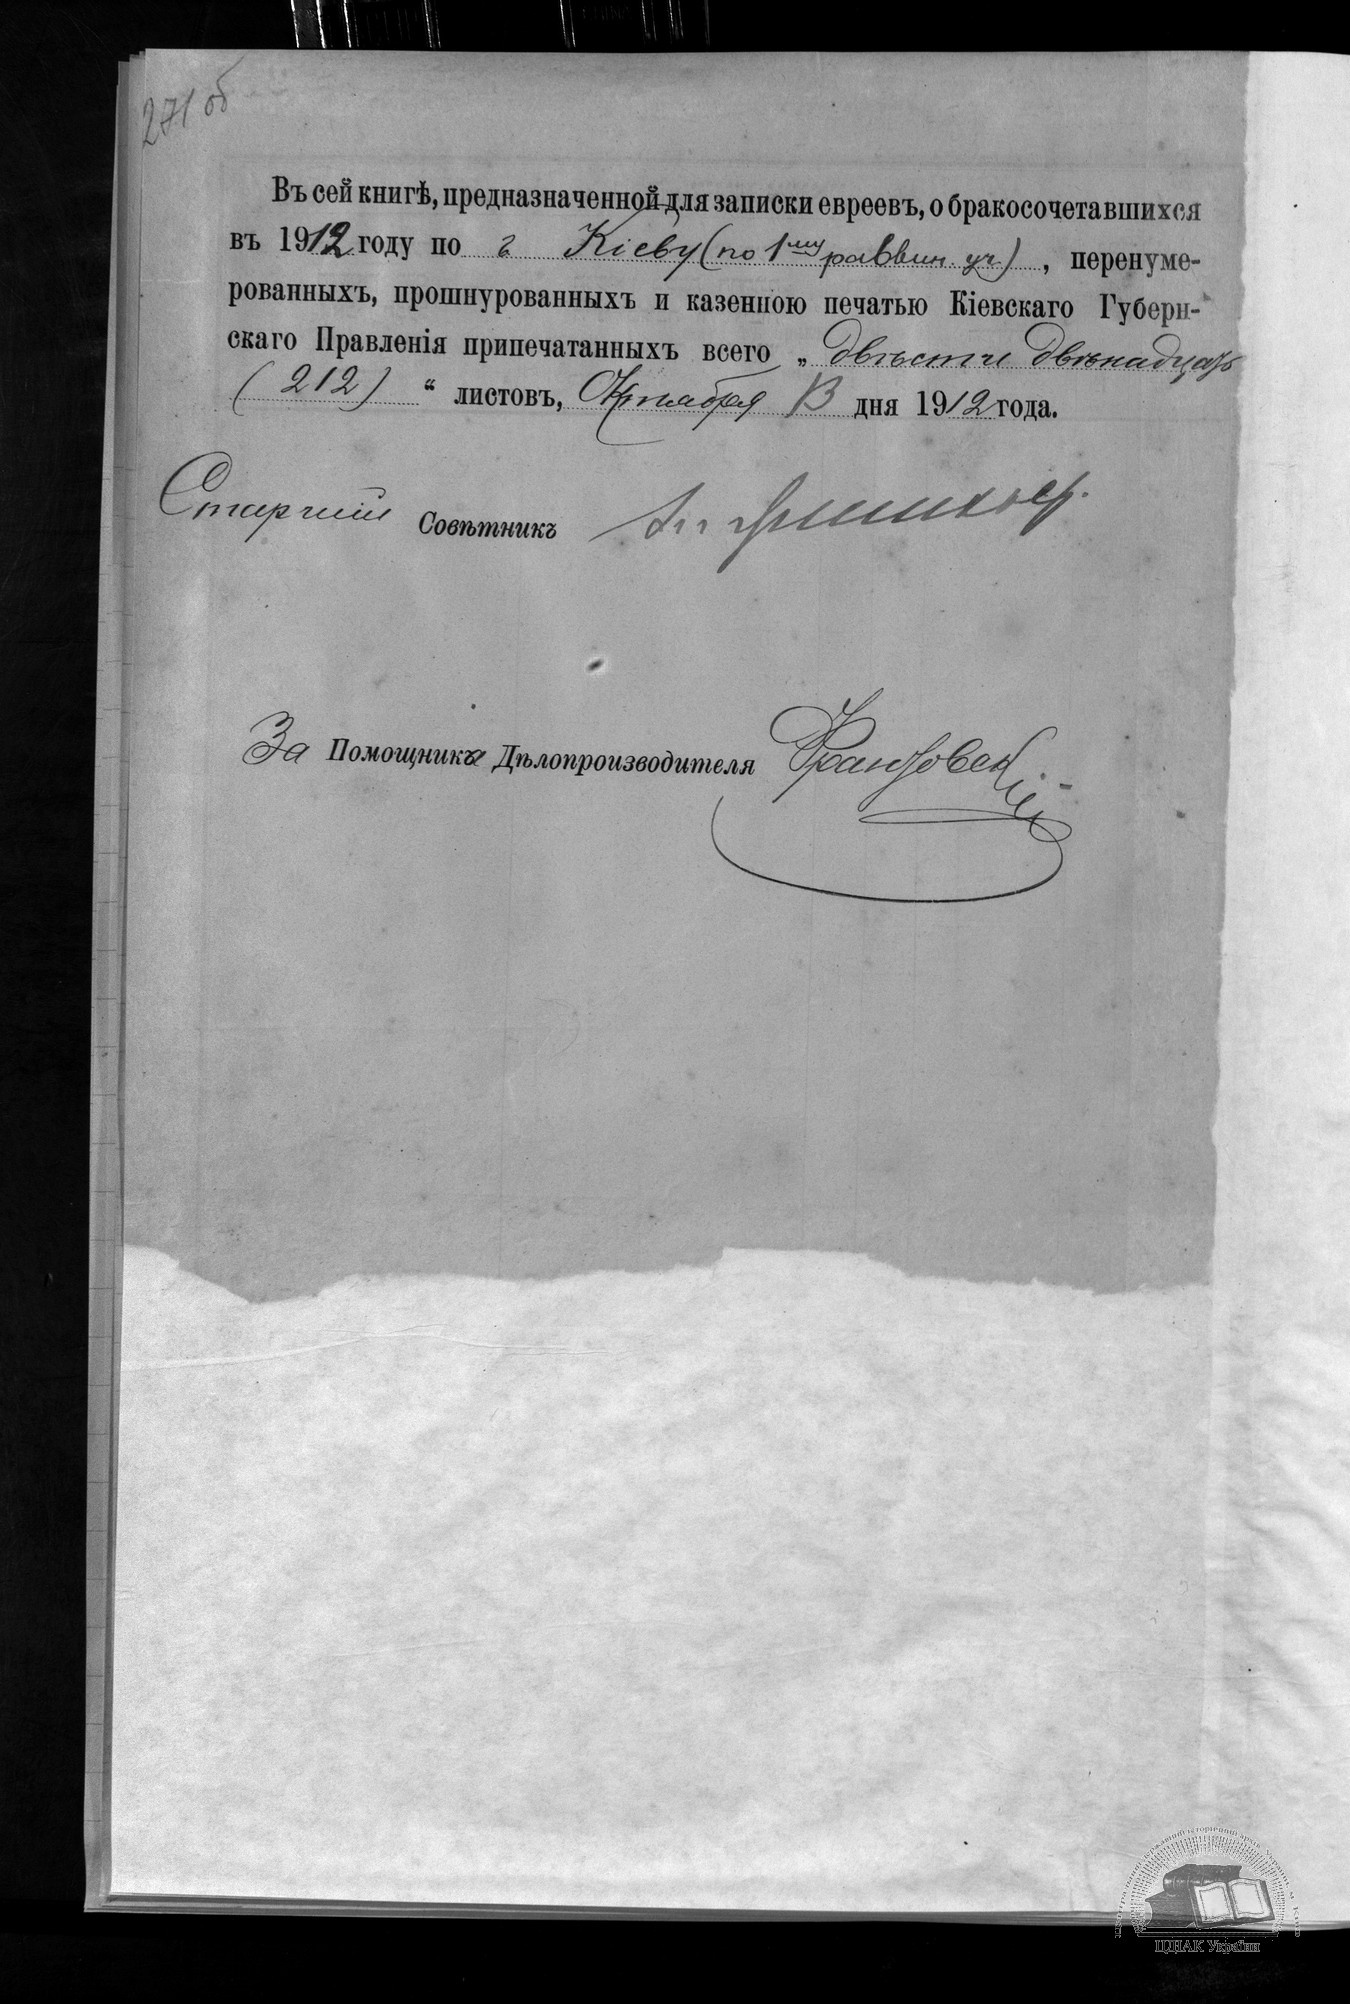 271 об
Въ сей книгѣ, предназначенной для записки евреевъ, о бракосочетавшихся
въ 1912 году по г Кіеву (по 1му раввин. уч.), перенуме-
рованныхъ, прошнурованныхъ и казенною печатью Кіевскаго Губерн-
скаго Правленія припечатанныхъ всего „двѣсти двѣнадцать
(212)“ листовъ, Октября дня 1912 года.
Старшій Совѣтникъ
За Помощника Дѣлопроизводителя
ЦДІАК України